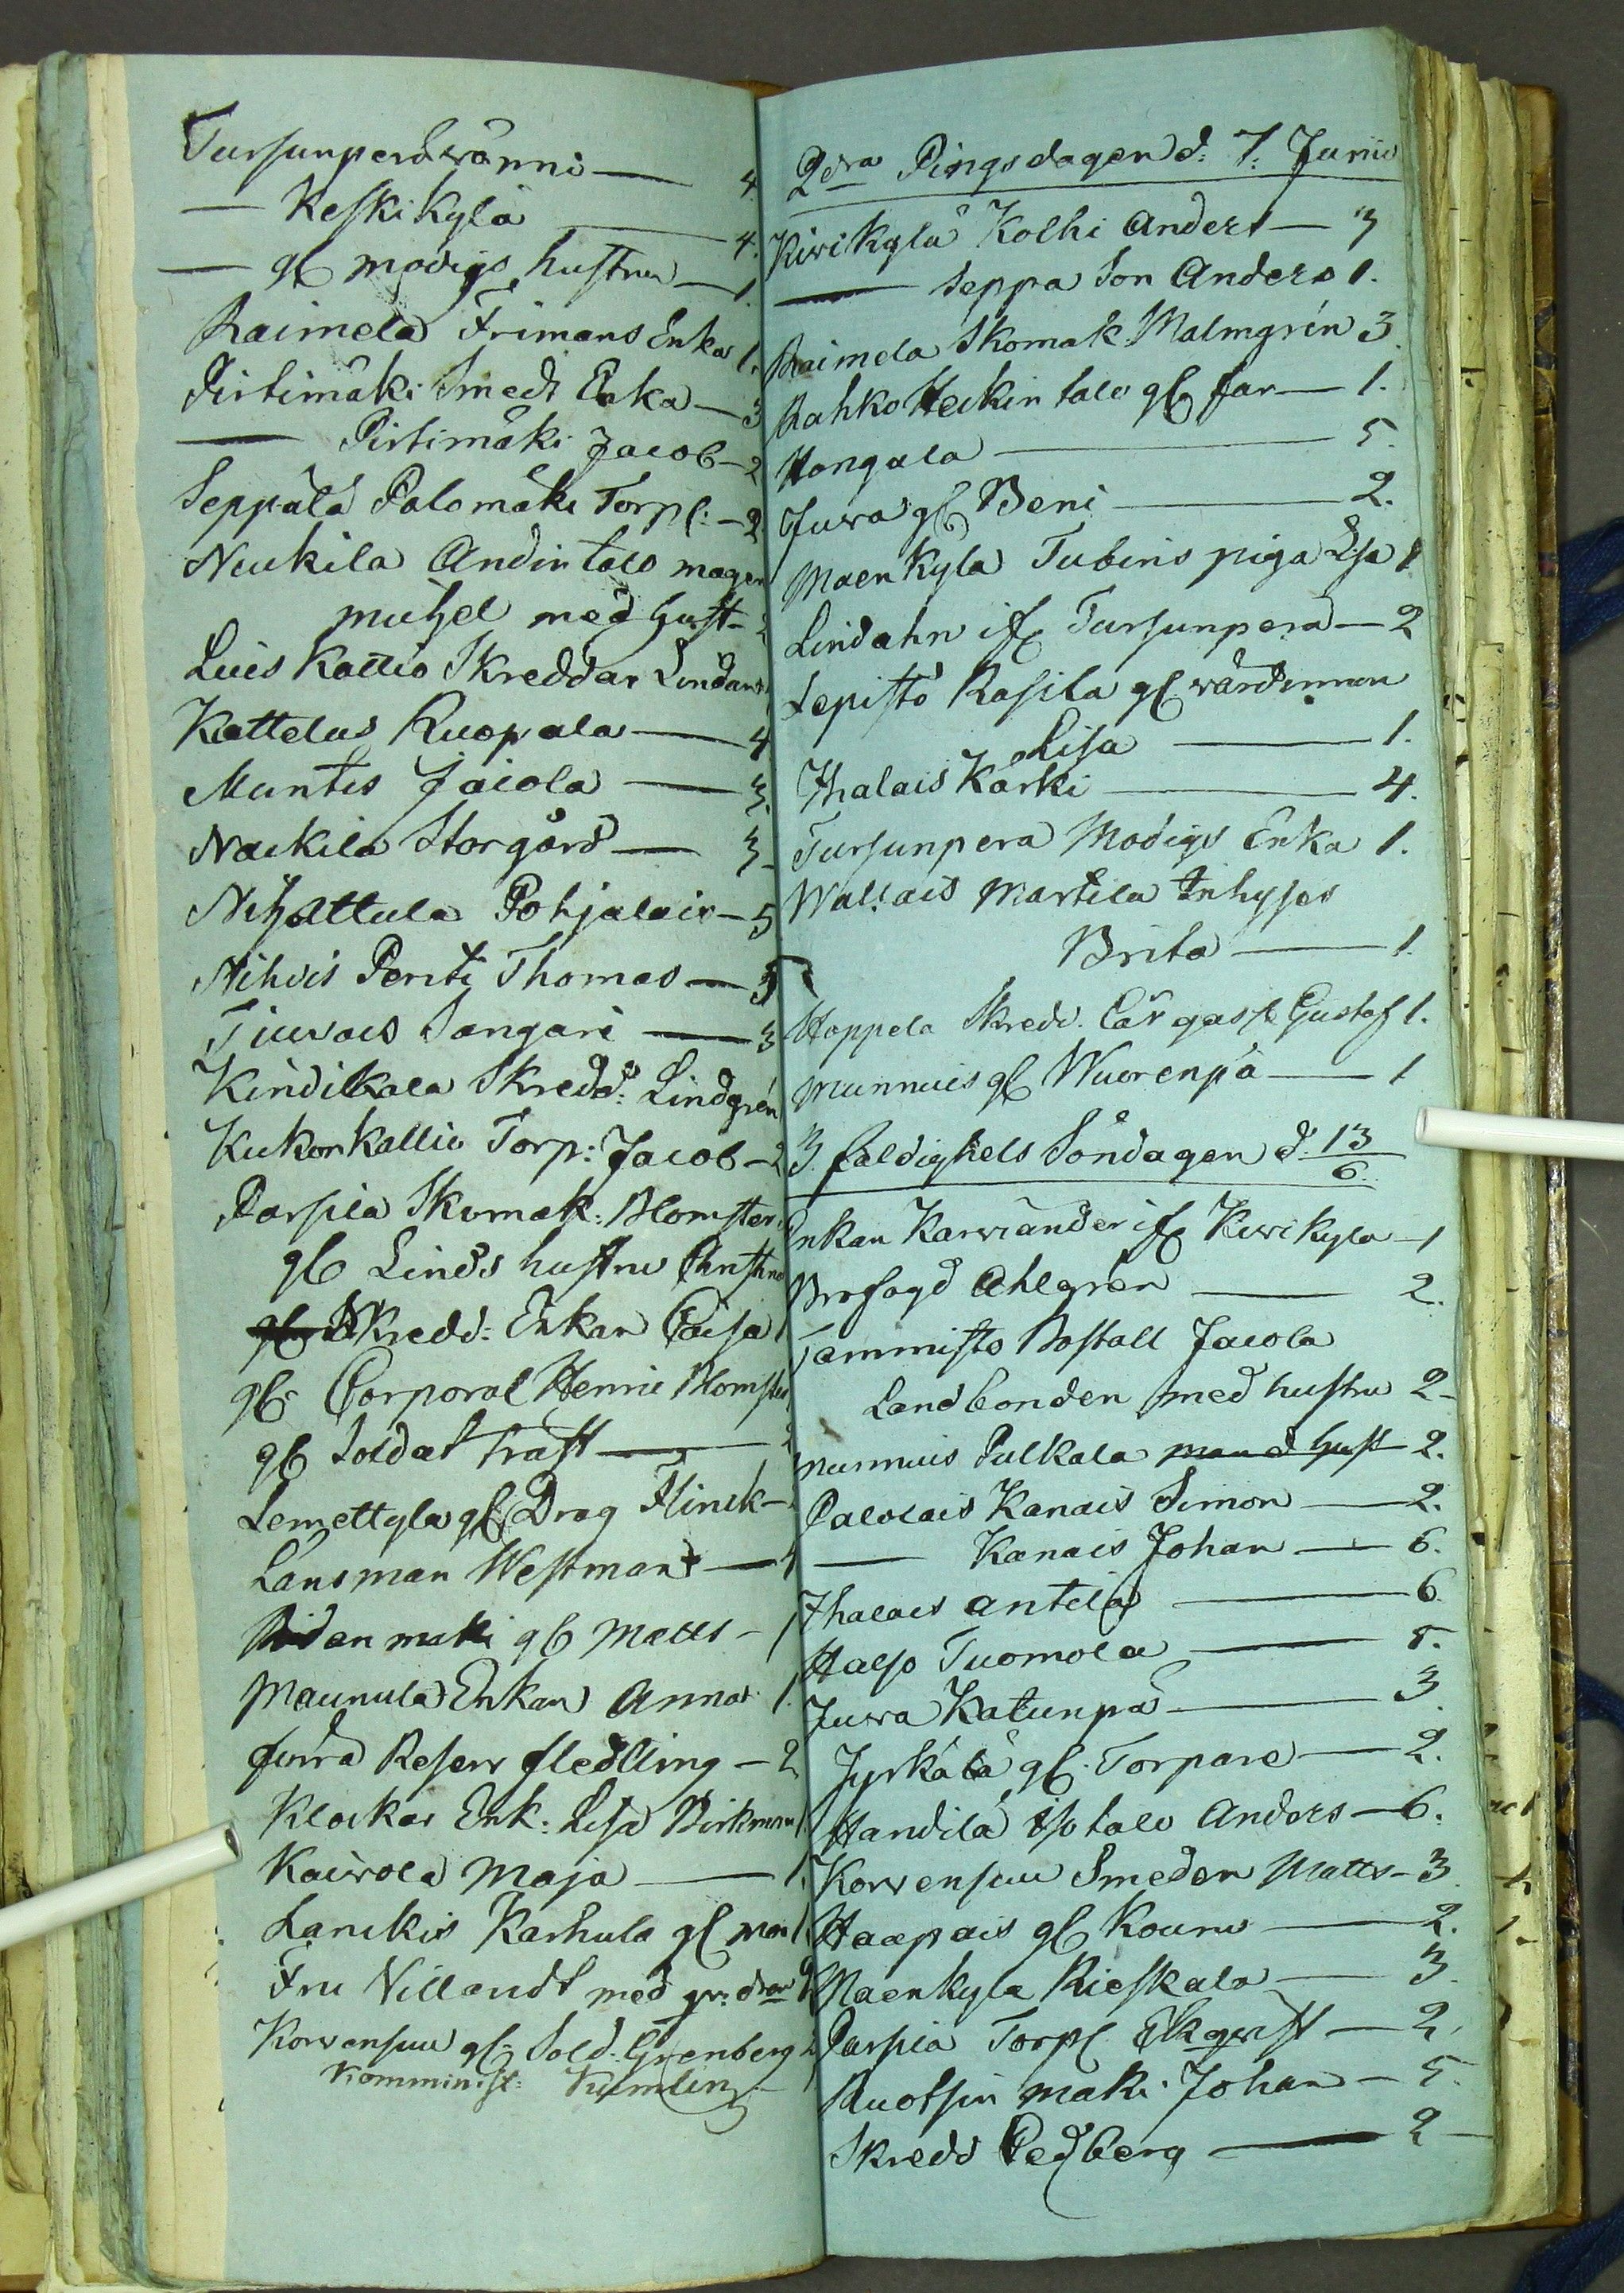 Tursunperä wänni — 4.
— Keskikylä — 4.
— gl modigs hustru — 1.
Raimela Frimans Enka 1.
Pirtimäki Smeds Enka — 3
— Pirtimäki Jacob — 2
Seppälä Palomäki Torp: — 2
Neukila Andin talo magen
Michel med Hust — 2
Luis Kallio Skreddar Lindans
Kattelus Ruopala — 4
Muntis Jacola — 3.
Naukila Storgård — 3
Nihattula Pohjalais — 5
Nihois Pertti Thomas — 5
Tiuvais Sangari — 3
Kindikala Skredd: Lindgrén
Kukonkallio Torp: Jacob — 2
Parsila Skomak: Blomster
gl Linds hustru Christina
Skredd: Enkan Caisa 1
gl Corporal Henric Blomster
gl Soldat Trast — 2
Lemettylä gl Drag Flinck —
Länsman Westman — 4
Ridanmäki gl Matts — 1
Maunula Enkan Anna 1.
Furra Reserv fledling — 2
Klockar Enk: Lisa Birkman 1.
Kairola Maja — 1.
Lanckis Karhula gl mor 1
Fru Villandt med gr: dra 2
Korvensuu gl. Sold. Grenberg 2
Komminist: Kumlin

2dra Pingsdagen d: 7: Junii
Kivikylä Kolhi Anders — 3
— Seppä Son Anders 1.
Raimela Skomak Malmgrén 3.
Rahko Heikin talo gl far — 1.
Hongala — 5.
Juva gl Beni — 2.
Maenkylä Tubins piga Lisa 1
Lindahn ifr Tursunperä — 2
Lepistö Rasila gl värdinnan
Lisa — 1.
Ihalais Kärki — 4.
Tursunpera Modigs Enka 1.
Wallais Martila Inhyses
Brita — 1.
Hoppela Skredd. Lärgosse Gustaf 1.
Munnuis gl Wuorenpä — 1
3. faldighets Söndagen d: 13/6
Enkan Karviander ifr Kivikylä — 1
Brofogd Ahlgrén — 2.
Tammisto Bostall Jacola
Landbonden med hustru 2 —
Nurmuis Pulkala man d Hust 2.
Palolais Kanais Simon — 2.
— Kanais Johan — 6.
Ihalais Antila — 6.
Halso Tuomola — 5.
Juva Katunpä — 3.
Jyrkälä gl. Torpare — 2.
Handila Isotalo Anders — 6.
Korvensuu Smeden Matts — 3.
Haapais gl Kouru — 2.
Maenkylä Rieskala — 3.
Parsila Torp Ekqvist — 2.
Ruotsin maki Johan — 5.
Skredd Pedberg — 2 —